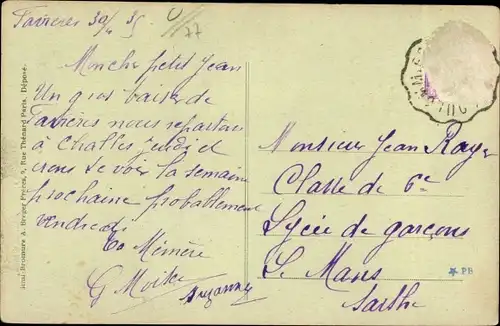 30/4 35
Mon cher petit Jean
Un gros baiser de
nous repartons
à Challes jeudi et
irons te voir la semaine
prochaine probablement
vendredi
Ta Mémère
G
Suzanne
Monsieur Jean Raye
Classe de 6e
Lycée de garçons
Le Mans
Sarthe
PB
Semi-Bromure A. Breger Frères, 9, Rue Thénard Paris. Déposé.